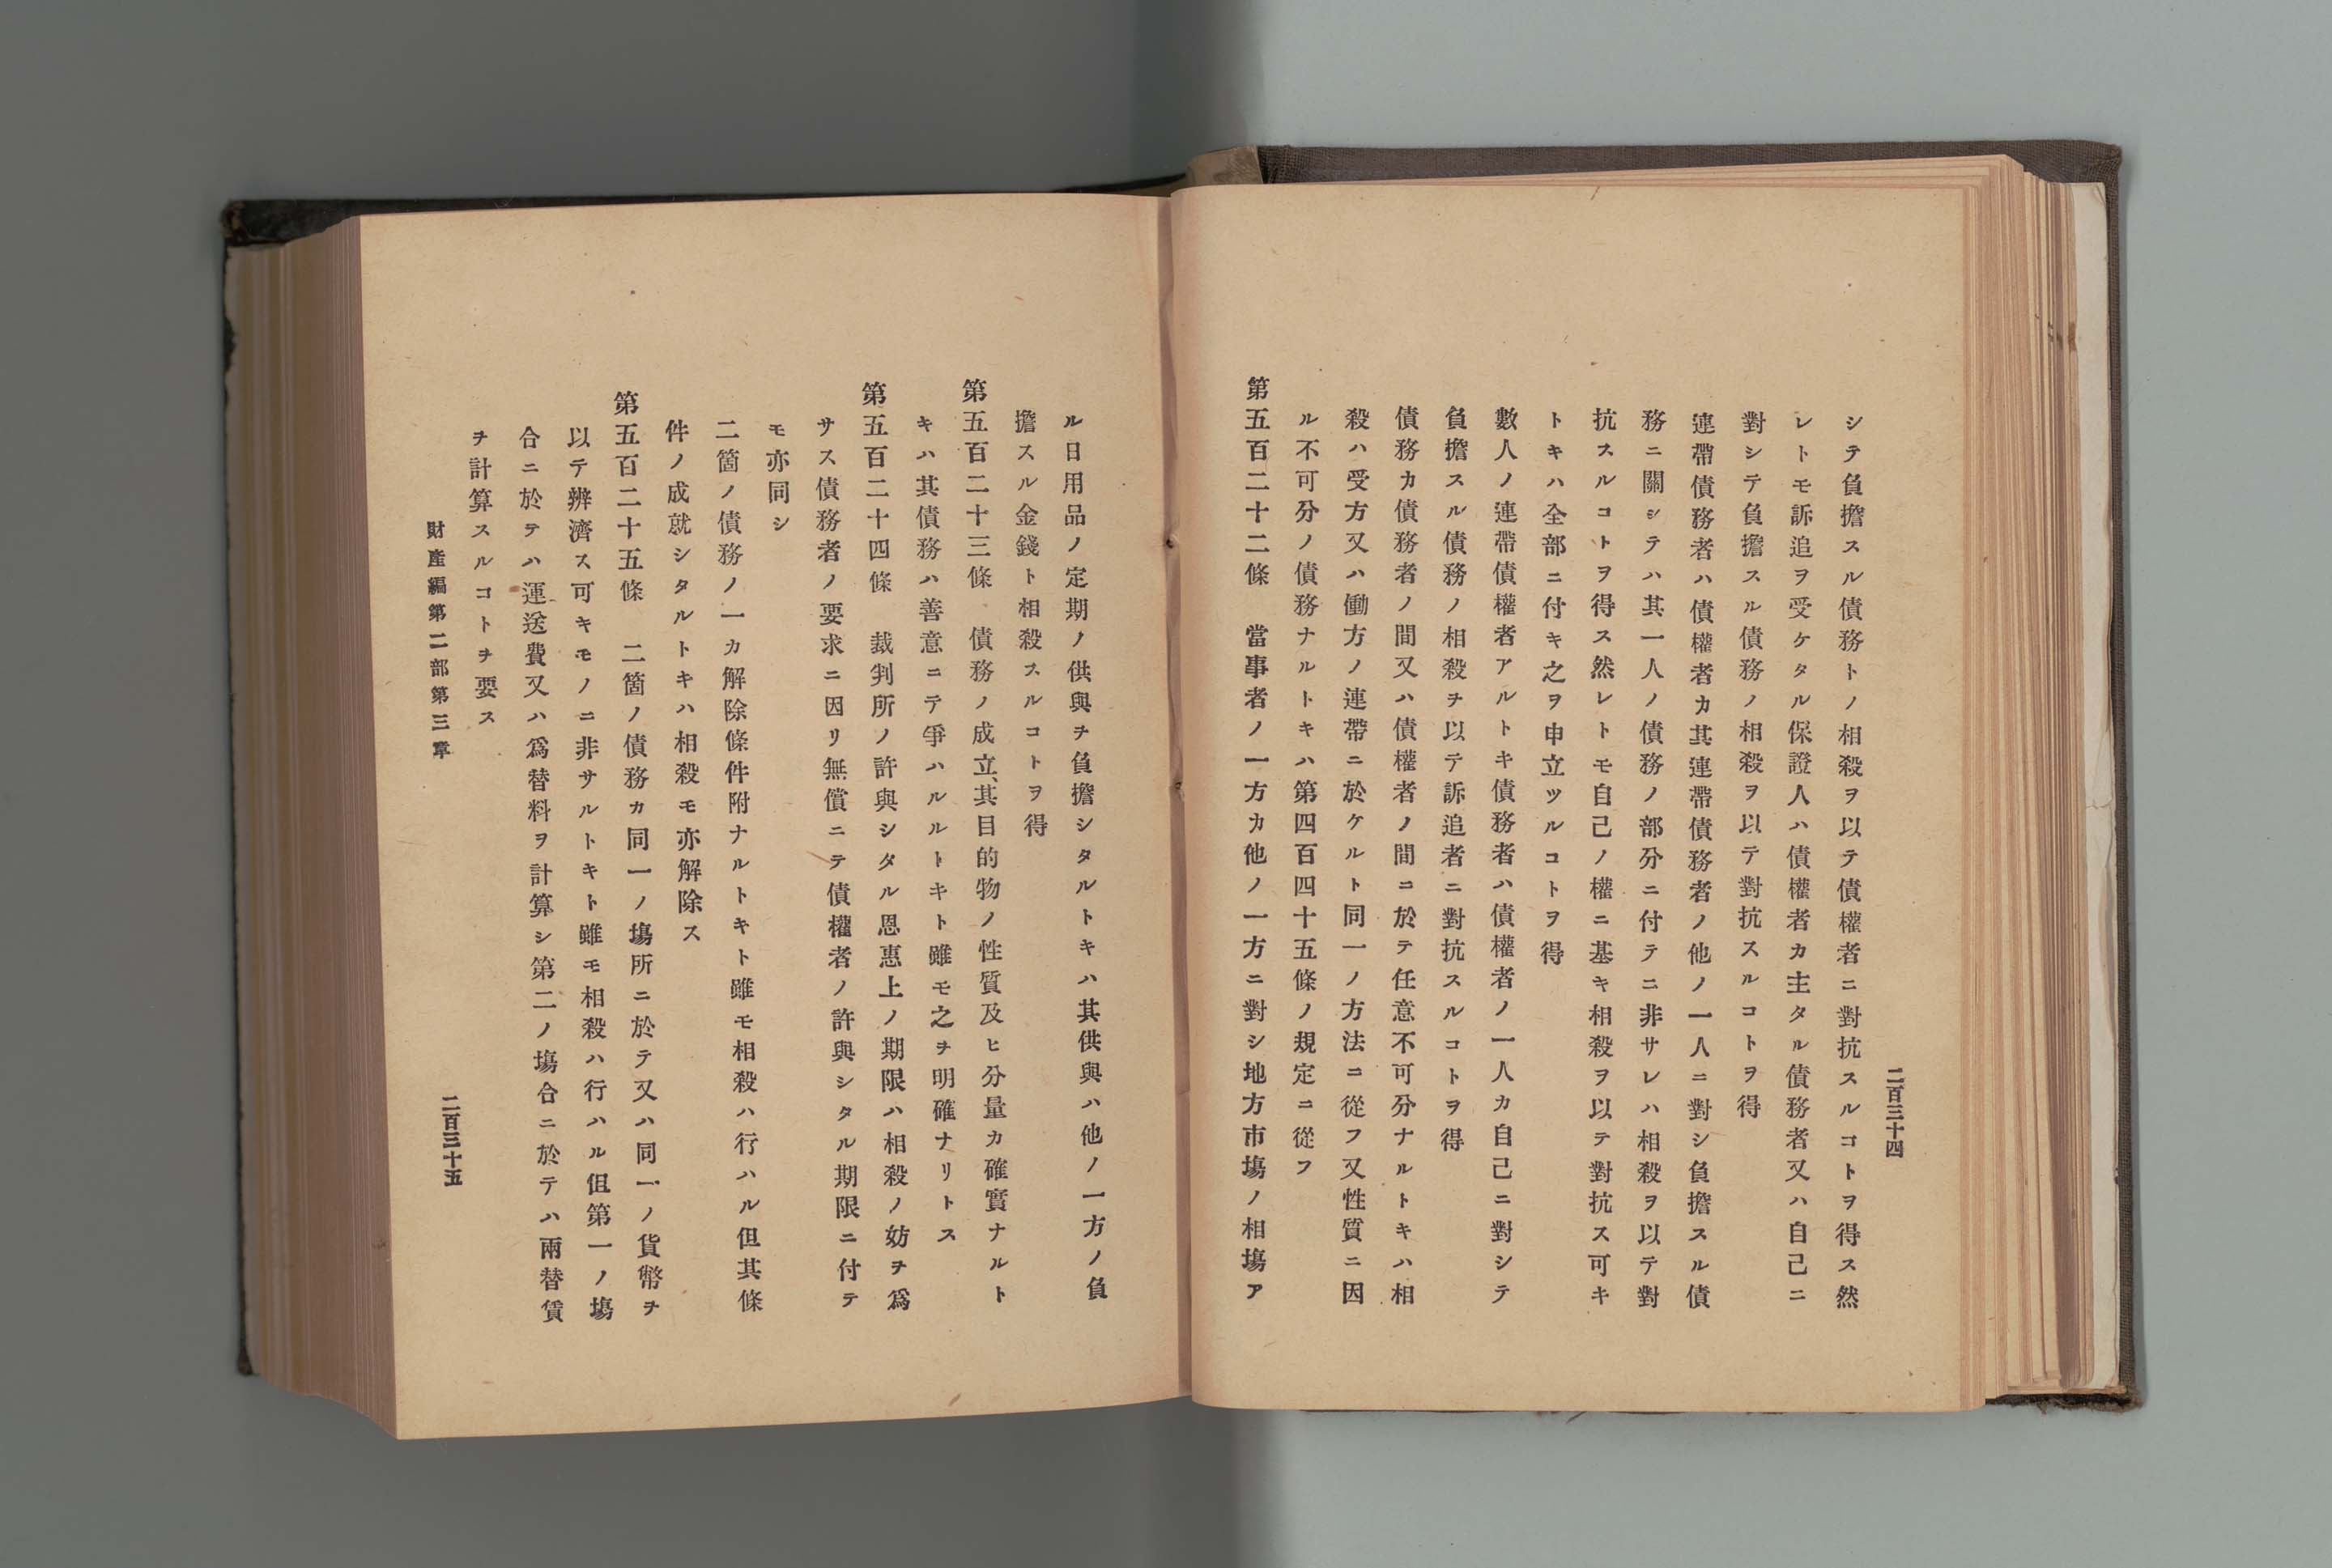 二百三十四
シテ負擔スル債務トノ相殺ヲ以テ債權者ニ對抗スルコトヲ得ス然
レトモ訴追ヲ受ケタル保證人ハ債權者カ主タル債務者又ハ自己ニ
對シテ負擔スル債務ノ相殺ヲ以テ對抗スルコトヲ得
連帶債務者ハ債權者カ其連帶債務者ノ他ノ一人ニ對シ負擔スル債
務ニ關シテハ其一人ノ債務ノ部分ニ付テニ非サレハ相殺ヲ以テ對
抗スルコトヲ得ス然レトモ自己ノ權ニ基キ相殺ヲ以テ對抗ス可キ
トキハ全部ニ付キ之ヲ申立ツルコトヲ得
數人ノ連帶債權者アルトキ債務者ハ債權者ノ一人カ自己ニ對シテ
負擔スル債務ノ相殺ヲ以テ訴追者ニ對抗スルコトヲ得
債務カ債務者ノ間又ハ債權者ノ間ニ於テ任意不可分ナルトキハ相
殺ハ受方又ハ働方ノ連帶ニ於ケルト同一ノ方法ニ從フ又性質ニ因
ル不可分ノ債務ナルトキハ第四百四十五條ノ規定ニ從フ
第五百二十二條　當事者ノ一方カ他ノ一方ニ對シ地方市塲ノ相塲ア
ル日用品ノ定期ノ供與ヲ負擔シタルトキハ其供與ハ他ノ一方ノ負
擔スル金錢ト相殺スルコトヲ得
第五百二十三條　債務ノ成立、其目的物ノ性質及ヒ分量カ確實ナルト
キハ其債務ハ善意ニテ爭ハルルトキト雖モ之ヲ明確ナリトス
第五百二十四條　裁判所ノ許與シタル恩惠上ノ期限ハ相殺ノ妨ヲ爲
サス債務者ノ要求ニ因リ無償ニテ債權者ノ許與シタル期限ニ付テ
モ亦同シ
二箇ノ債務ノ一カ解除條件附ナルトキト雖モ相殺ハ行ハル但其條
件ノ成就シタルトキハ相殺モ亦解除ス
第五百二十五條　二箇ノ債務カ同一ノ塲所ニ於テ又ハ同一ノ貨幣ヲ
以テ辨濟ス可キモノニ非サルトキト雖モ相殺ハ行ハル但第一ノ塲
合ニ於テハ運送費又ハ爲替料ヲ計算シ第二ノ塲合ニ於テハ兩替賃
ヲ計算スルコトヲ要ス
財產編第二部第三章
二百三十五